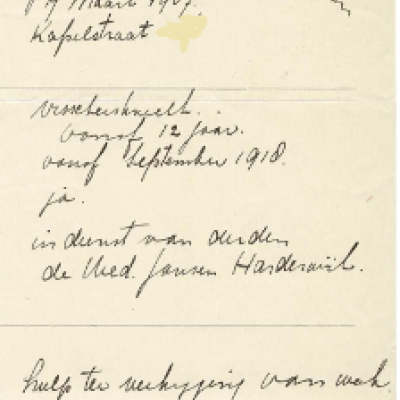 9 Maart 1907.
Kapelstraat
Visschersknecht.
vanaf 12 jaar.
vanaf September 1918.
ja.
in dienst van derden
de Wed. Jansen Harderwijk.
hulp ter verkrijging van werk